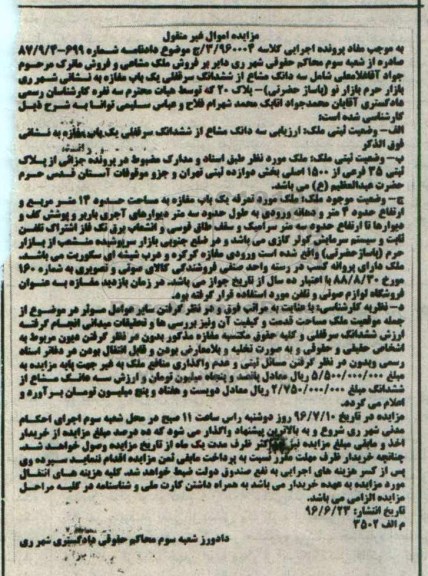 مزایده اموال غیر منقول
به موجب مفاد پرونده اجرایی کلاسه ۳/۹۶۰۰۰۴/ج موضوع دادنامه شماره ۶۹۹-۸۷/۹/۴
صادره از شعبه سوم محاکم حقوقی شهر ری دایر بر فروش ملک مشاعی و فروش ماترک مرحوم
جواد آقاغلامعلی شامل سه دانگ مشاع از ششدانگ سرقفلی یک باب مغازه به نشانی شهر ری
بازار حرم بازار نو (پاساژ حضرتی) – پلاک ۲۰ که توسط هیات محترم سه نفره کارشناسان رسمی
دادگستری آقایان محمدجواد اتابک محمد شهرام فلاح و عباس سلیمی توانا به شرح ذیل
کارشناسی شده است:
الف – وضعیت ثبتی ملک: ارزیابی سه دانگ مشاع از ششدانگ سرقفلی یک باب مغازه به نشانی
فوق الذکر
ب – وضعیت ثبتی ملک: ملک مورد نظر طبق اسناد و مدارک مضبوط در پرونده جزائی از پلاک
ثبتی ۳۵ فرعی از ۱۵۰۰ اصلی بخش دوازده ثبتی تهران و جزو موقوفات آستان قدسی حرم
حضرت عبدالعظیم (ع) می باشد.
ج – وضعیت موجود ملک: ملک مورد تعرفه یک باب مغازه به مساحت حدود ۱۴ متر مربع و
ارتفاع حدود ۴ متر و دهانه ورودی به طول حدود سه متر دیوارهای آجری باربر و پوشش کف و
دیوارها تا ارتفاع حدود سه متر سرامیک و سقف طاق قوسی و انشعاب برق تک فاز اشتراک تلفن
ثابت و سیستم سرمایش کولر گازی می باشد و در ضلع جنوبی بازار سرپوشیده منشعب از بازار
حرم (پاساژ حضرتی) واقع شده است ورودی مغازه کرکره و درب شیشه ای سکوریت می باشد.
ملک دارای پروانه کسب در رسته واحد صنفی فروشندگی کالای صوتی و تصویری به شماره ۱۶۰
مورخ ۸۸/۸/۳۰ با اعتبار ده سال از تاریخ جواز می باشد. در زمان بازدید مغازه به عنوان
فروشگاه لوازم صوتی و تلفن مورد استفاده قرار گرفته بود.
د – نظریه کارشناسی: با عنایت به مراتب فوق و در نظر گرفتن سایر عوامل موثر در موضوع از
جمله موقعیت ملک مساحت قدمت و کیفیت آن ونیز بررسی ها و تحقیقات میدانی انجام گرفته
ارزش ششدانگ سرقفلی و کلیه حقوق مکتسبه مغازه مذکور بدون در نظر گرفتن دیون مربوط به
اشخاص حقیقی و حقوقی و به صورت تخلیه و بلامعارض بودن و قابل انتقال بودن در دفاتر اسناد
رسمی وبدون در نظر گرفتن مسائل ثبتی و عدم واگذاری منافع ملک به غیر جهت پایه مزایده به
مبلغ ۵/۵۰۰/۰۰۰/۰۰۰ ریال معادل پانصد و پنجاه میلیون تومان و ارزش سه دانگ مشاع از
ششدانگ مبلغ ۲/۷۵۰/۰۰۰/۰۰۰ ریال معادل دویست و هفتاد و پنج میلیون تومان برآورد و
اعلام می گردد.
مزایده در تاریخ ۹۶/۷/۱۰ روز دوشنبه راس ساعت ۱۱ صبح در محل شعبه سوم اجرای احکام
مدنی شهر ری شروع و به بالاترین پیشنهاد واگذار می شود که ده درصد مبلغ مزایده از خریدار
اخذ و مابقی مبلغ مزایده نیز حداکثر ظرف مدت یک ماه از تاریخ مزایده وصول خواهد شد.
چنانچه خریدار ظرف مهلت مقرر نسبت به پرداخت مابقی ثمن مزایده اقدام ننماید سپرده وی
پس از کسر هزینه های اجرایی به نفع صندوق دولت ضبط خواهد شد. کلیه هزینه های انتقال
مورد مزایده به عهده خریدار می باشد به همراه داشتن کارت ملی و شناسنامه در کلیه مراحل
مزایده الزامی می باشد.
تاریخ انتشار: ۹۶/۶/۲۳
م الف ۳۵۰۲
دادورز شعبه سوم محاکم حقوقی دادگستری شهر ری